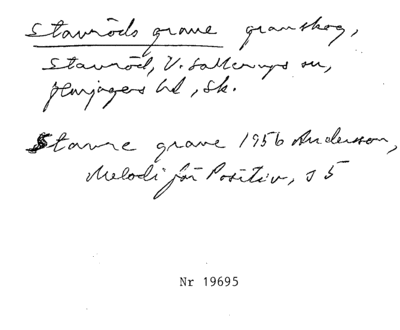 Stavröds grave granskog,
Stavröd, V. Sallerups sn,
Harjagers hd, Sk.
Stavre grave 1956 Andersson,
Melodi för Positiv, s 5
Nr 19695